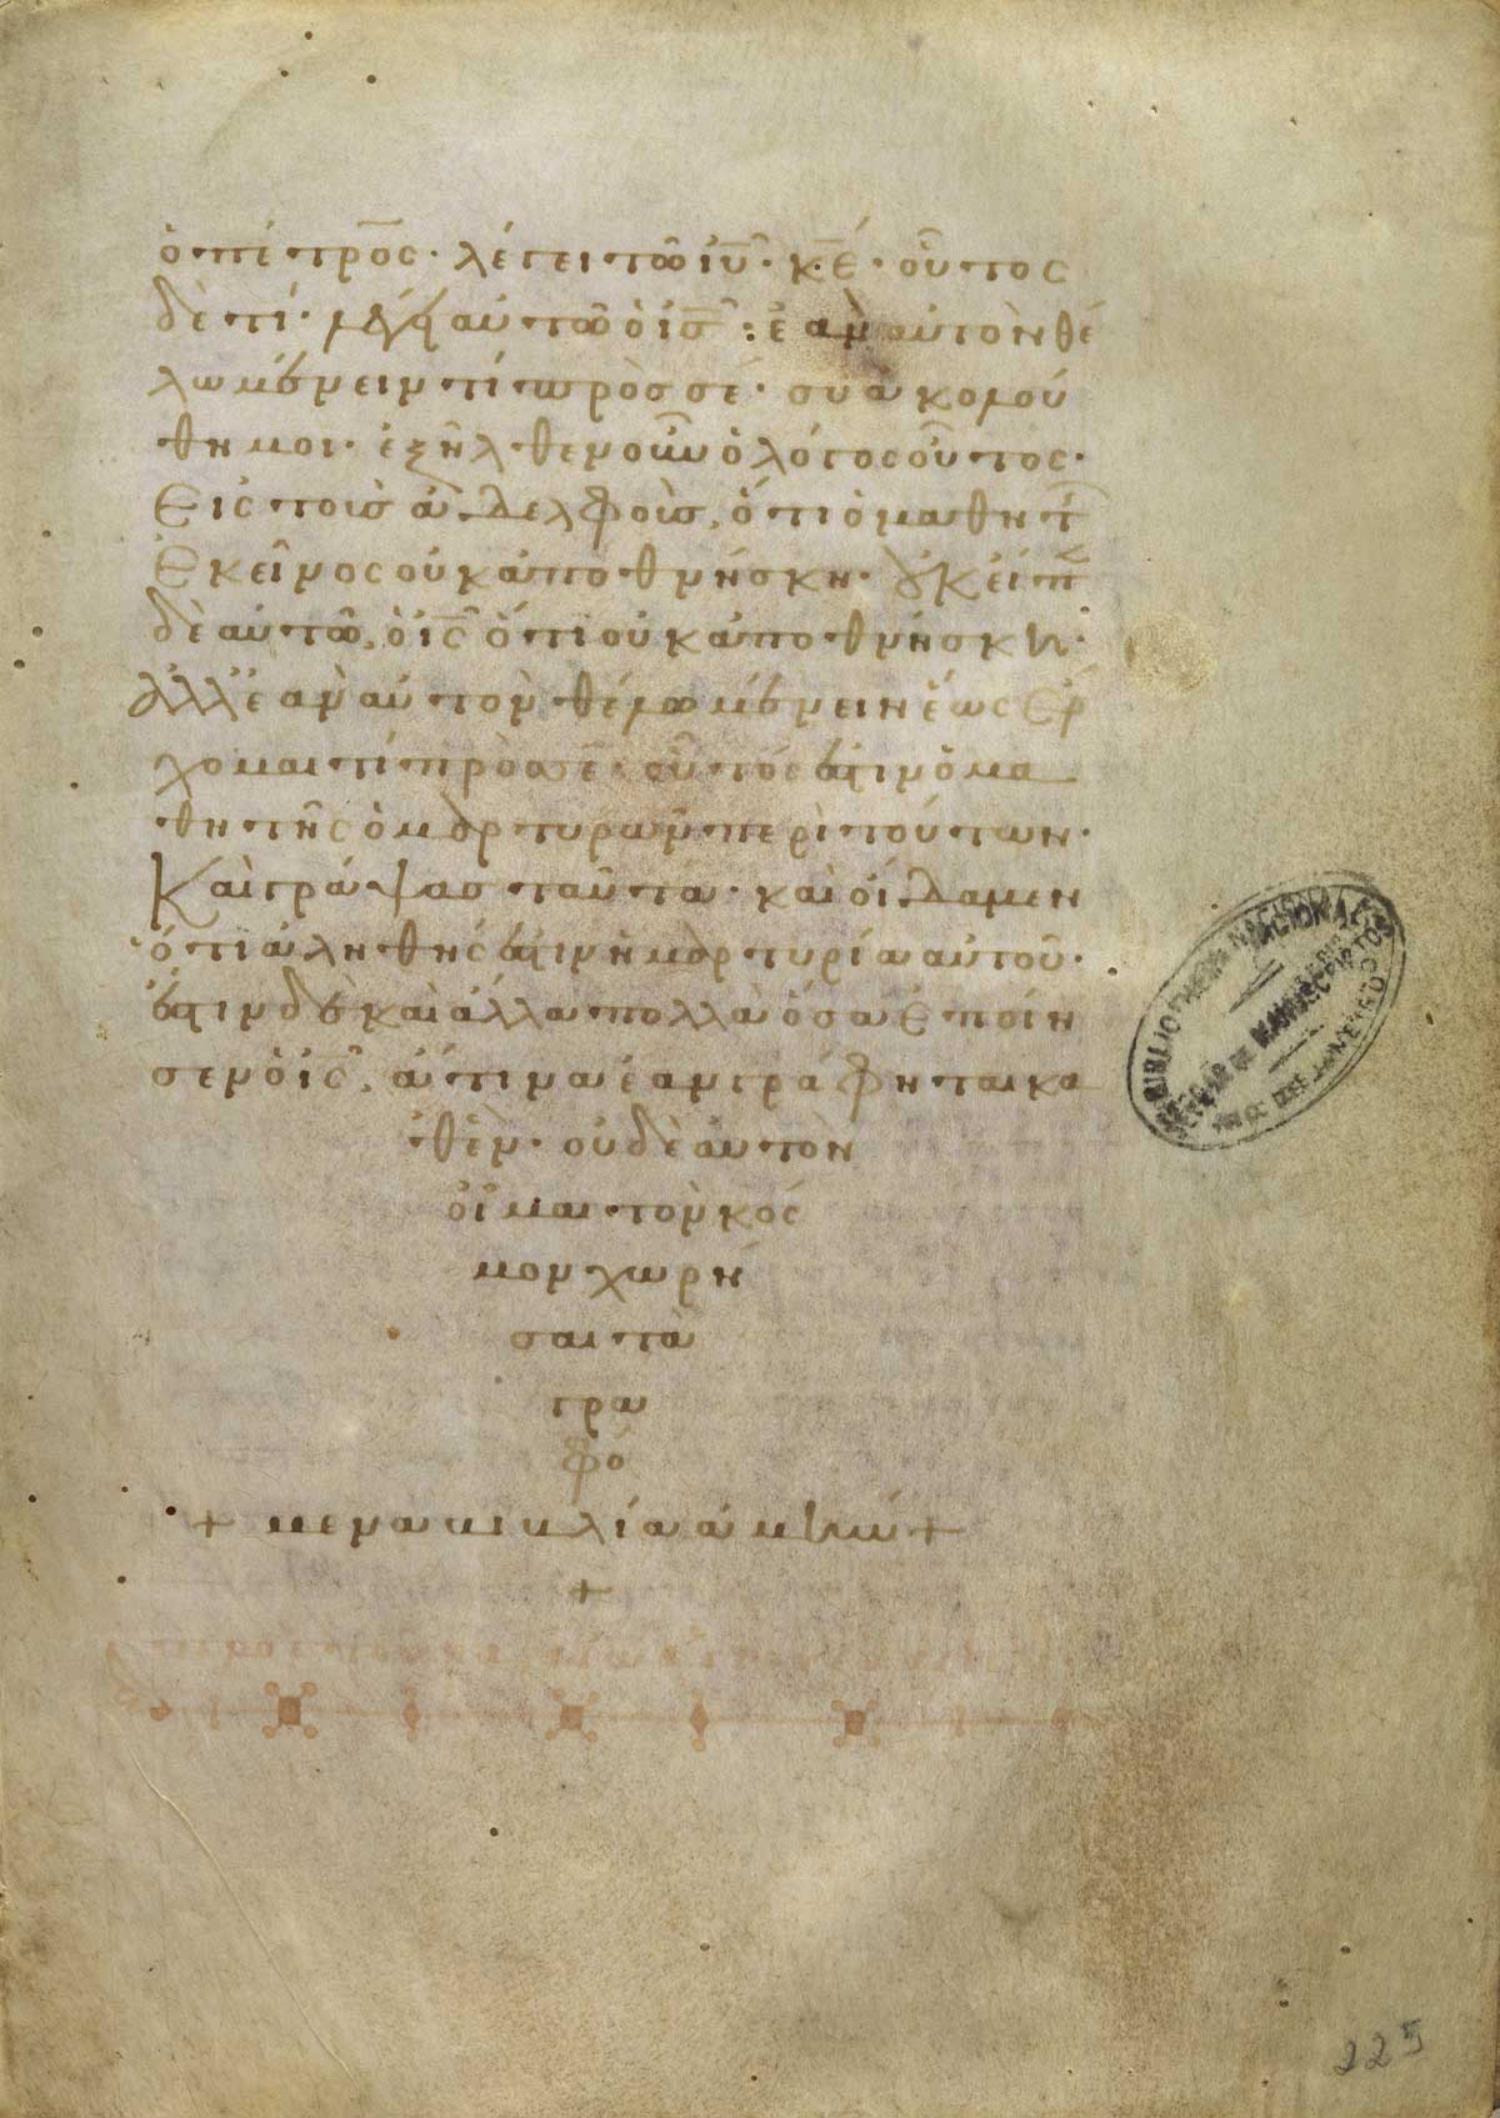 ὁ πέτρος· λέγει τῶ ἰῦ· κ̅ε̅· οὗτος
δὲ τί· λέγει αὐτῶ ὁ ἰσ̅: ἐὰν αὐτὸν θέ
λω μένειν τί πρὸς σέ· συ ἀκολού
θη μοι· ἐξῆλθεν οὖν ὁ λόγος οὗτος·
Εἰς τοὺσ ἀδελφοὺσ, ὅτι ὁ μαθητ
Ἐκεῖνος οὐκ ἀποθνήσκη· οὐκ εἶπ
δὲ αὐτῶ, ὁ ἰς̅ ὅτι οὐκ ἀποθνήσκει·
ἀλλ' ἐὰν αὐτὸν θέλω μένειν ἕως ἔρ
χομαι τί πρὸσ σέ· οὗτός ἐστιν ὁ μα
θητῆς ὁ μαρτυρῶν περὶ τούτων·
Καὶ γράψασ ταῦτα· καὶ οἴδαμεν
ὅτι ἀληθής ἐστιν ἡ μαρτυρία αὐτοῦ·
ἔστιν δὲ καὶ ἄλλα πολλὰ ὅσα ἐποίη
σεν ὁ ἰς̅, ἅτινα ἐὰν γράφηται κα
θὲν· οὐδὲ αὐτὸν
οἶμαι τὸν κόσ
μον χωρή
σαι τὰ
γρα
φό
+ μενα βιβλία ἀμήν +
+
BIBLIOTHECA NACIONAL
SECÇÃO DE MANUSCRIPTOS
RIO DE JANEIRO
225